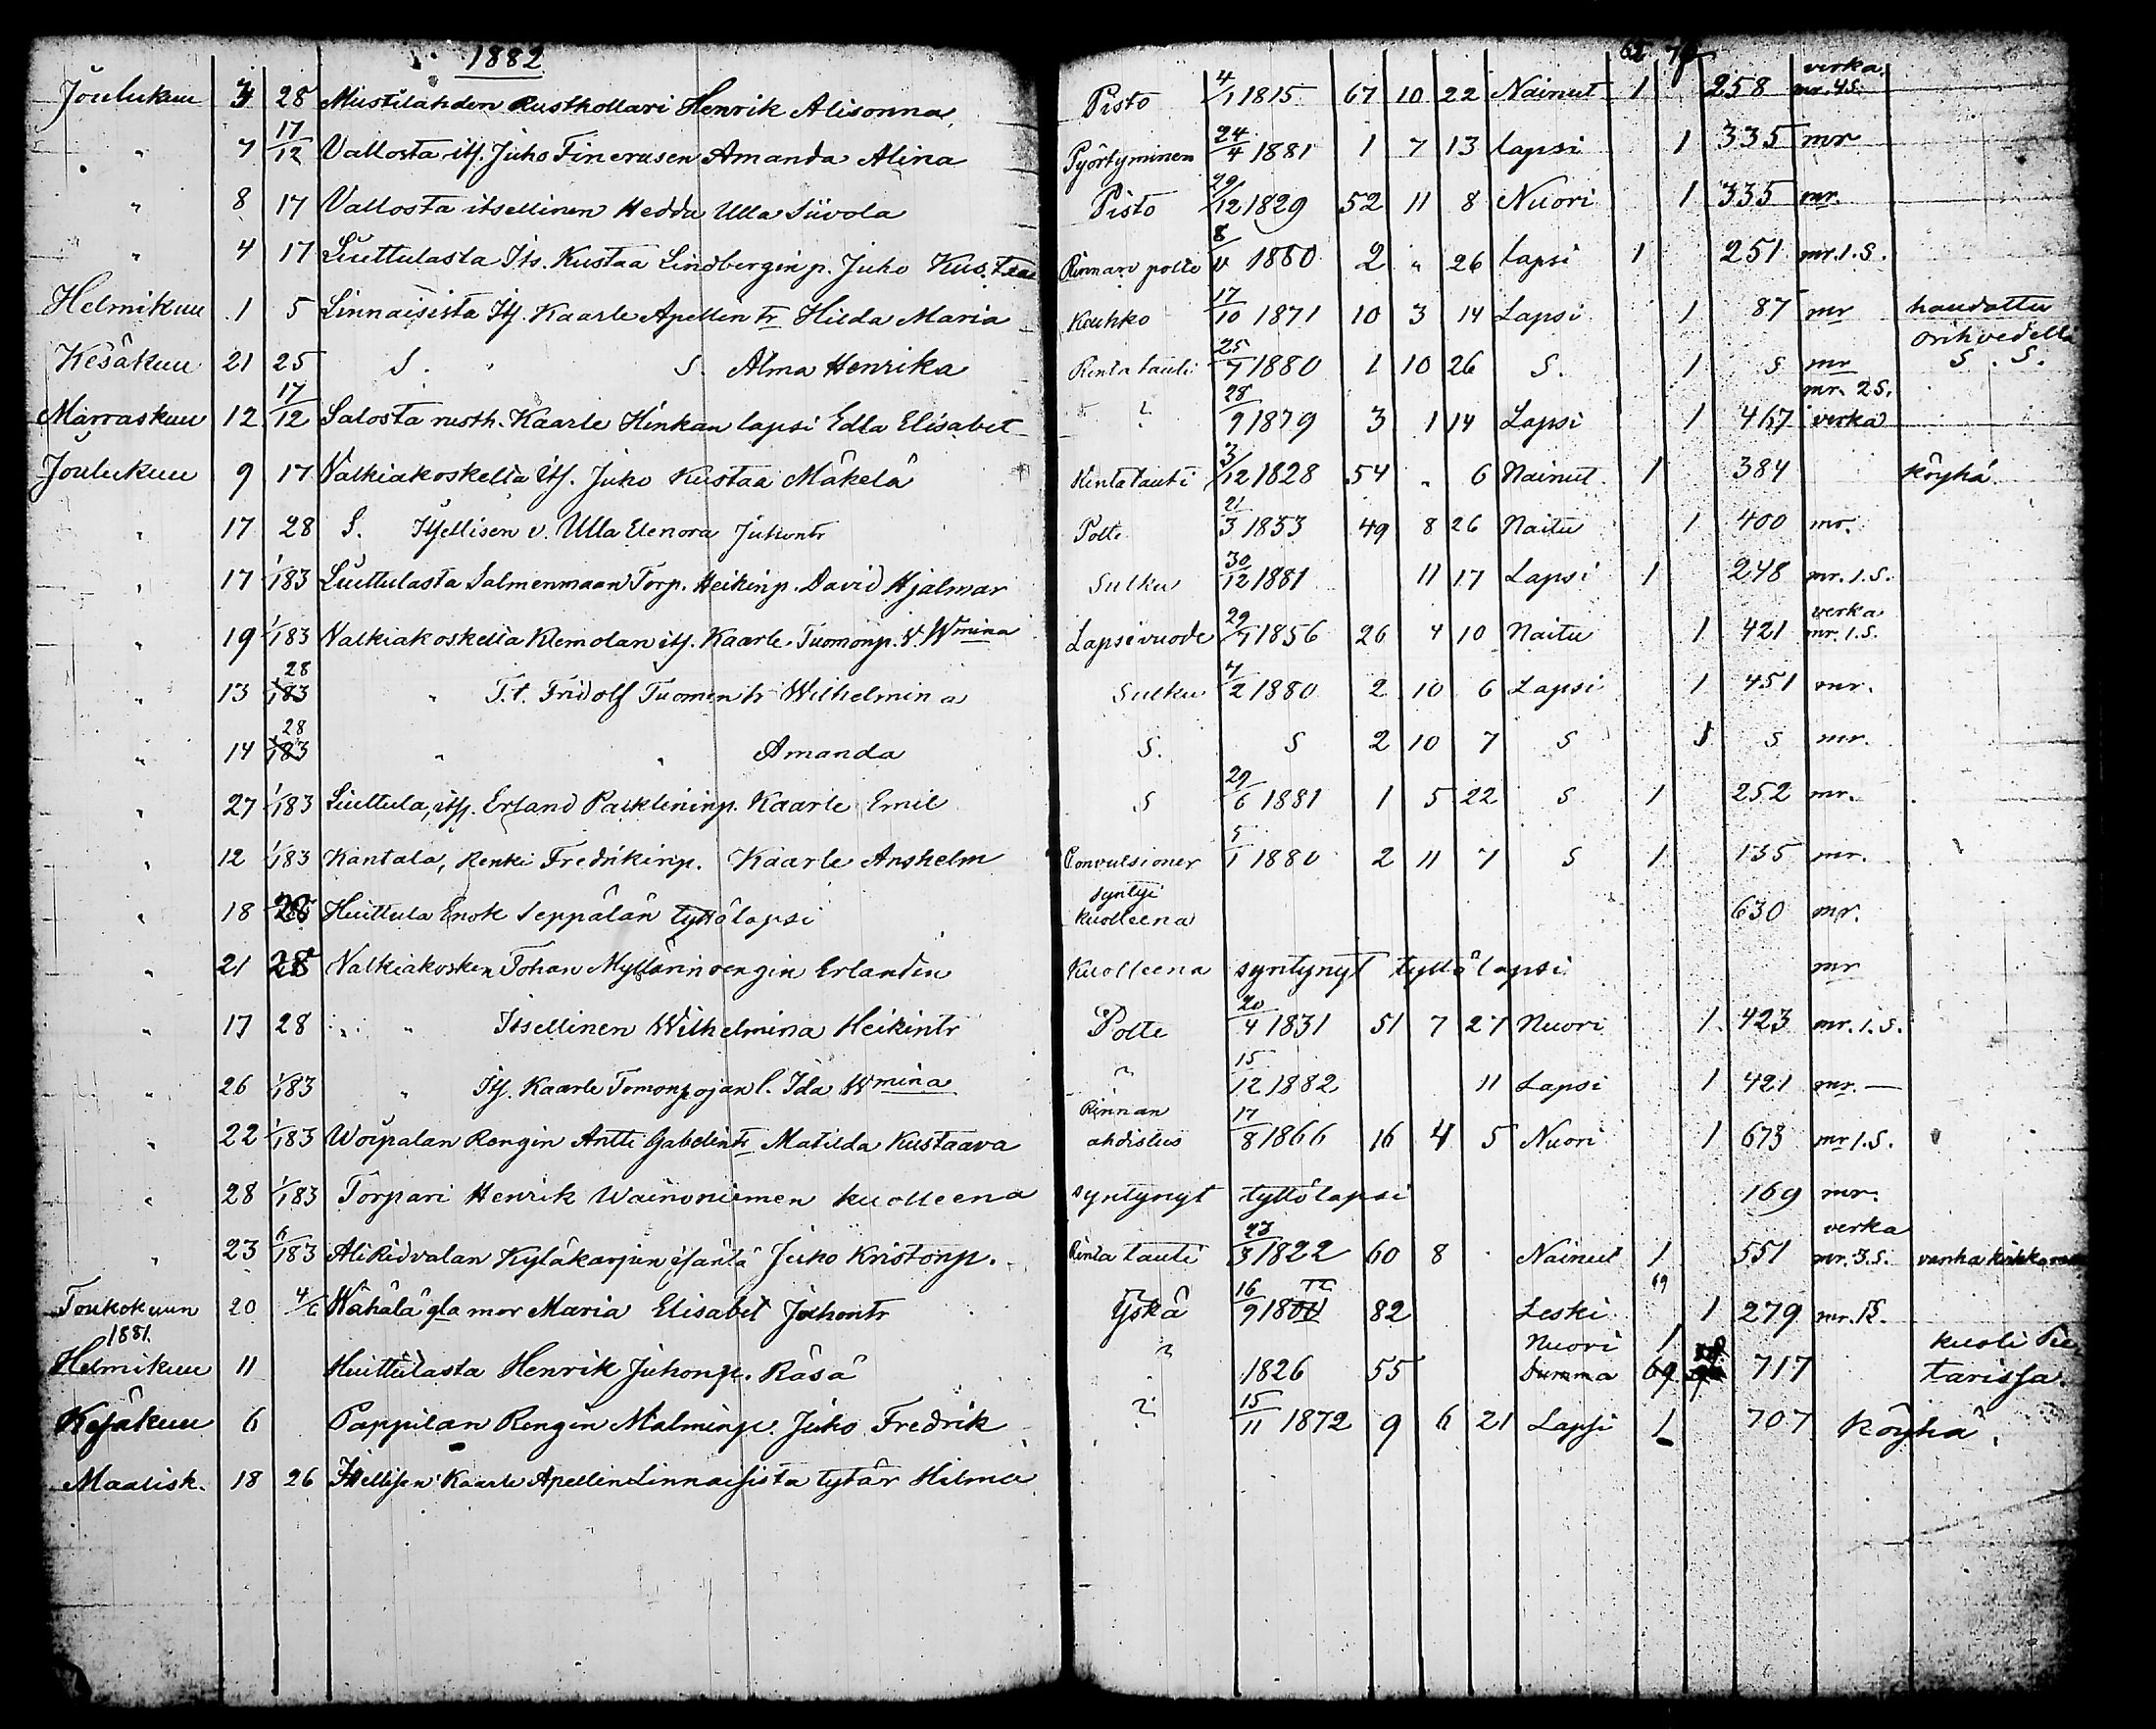 1882
62 78
Joulukuu 4 28 Mustilahden Rusthollari Henrik Alisonna Pisto 4/1 1815 67 10 22 Nainut 1 258 verka mr. 4 S.
" 7 17/12 Vallosta itς. Juho Finerusen Amanda Alina Pyörtyminen 24/4 1881 1 7 13 Lapsi 1 335 mr
" 8 17 Vallosta itsellinen Hedda Ulla Siivola Pisto 29/12 1829 52 11 8 Nuori 1 335 mr.
" 4 17 Liuttulasta Its. Kustaa Lindbergin p. Juho Kustaa Rinnan polte 8/11 1880 2 " 26 Lapsi 1 251 mr. 1. S.
Helmikuu 1 5 Linnaisista Itſ. Kaarle Apellin tr Hilda Maria Keuhko 17/10 1871 10 3 14 Lapsi 1 87 mr haudattu orihvedellä
Kesäkuu 21 25 S. " S. Alma Henrika Rinta tauti 25/7 1880 1 10 26 S. 1 S mr S. S.
Marraskuu 12 17/12 Salosta rusth. Kaarle Hinkan lapsi Edla Elisabet ? 28/9 1879 3 1 14 Lapsi 1 467 mr. 2 S. verka
Joulukuu 9 17 Valkiakoskelta itſ. Juho Kustaa Mäkelä Rintatauti 3/12 1828 54 " 6 Nainut 1 384 köyhä
" 17 28 S. Itſellisen v. Ulla Elenora Juhontr Polte 21/3 1833 49 8 26 Naitu 1 400 mr.
" 17 1/183 Liuttulasta Salmenmaan Torp. Heikin p. David Hjalmar Sulku 30/12 1881 11 17 Lapsi 1 248 mr. 1. S.
" 19 1/183 Valkiakoskelta Klemolan itſ. Kaarle Tuomonp. V. Wmina Lapsivuode 29/7 1856 26 4 10 Naitu 1 421 verka mr. 1. S.
" 13 28 T.t. Fridolf Tuomen tr Wilhelmina Sulku 7/2 1880 2 10 6 Lapsi 1 451 mr.
" 14 28 " " Amanda S. S 2 10 7 S 1 S mr.
" 27 1/183 Liuttula, itſ. Erland Packlenin p. Kaarle Emil S 29/6 1881 1 5 22 S 1 252 mr.
" 12 1/183 Kantala, Renki Fredrikin p. Kaarle Anshelm Convulsioner 5/1 1880 2 11 7 S 1 135 mr.
" 18 28 Huittula Enok Seppälän tyttölapsi syntyi kuolleena 630 mr.
" 21 28 Valkiakosken Johan Myllärin rengin Erlandin Kuolleena syntynyt tyttölapsi mr
" 17 28 " " Itsellinen Wilhelmina Heikintr Polte 20/4 1831 51 7 27 Nuori 1 423 mr. 1. S.
" 26 1/183 " Itſ. Kaarle Tomonpojan l. Ida Wmina ? 15/12 1882 11 Lapsi 1 421 mr. —
" 22 1/183 Woipalan Rengin Antti Gabelin tr Matilda Kustaava Rinnan ahdistus 17/8 1866 16 4 5 Nuori 1 673 mr 1. S.
" 28 1/183 Torpari Henrik Wainoniemen kuolleena syntynyt tyttölapsi 169 mr.
" 23 6/183 Ali Ridvalan Kyläkarjun isäntä Juho Kristonp. Rinta tauti 23/3 1822 60 8 Nainut 1 551 verka mr. 3. S. vanha
Toukokuun 20 4/6 Wähälä gla mor Maria Elisabet Juhontr Yskä 16/9 82 Leski 69 1 279 mr.
1881.
Helmikuu 11 Huittulasta Henrik Juhonp. Räsä ? 1826 55 Nuori 1 717 kuoli Pietarissa.
Summa 69
Kesäkuu 6 Pappilan Rengin Malmin p. Juho Fredrik ? 15/11 1872 9 6 21 Lapsi 1 707 köyhä.
Maalisk. 18 26 Itſellisen Kaarle Apellin Linnaisista tytär Hilma